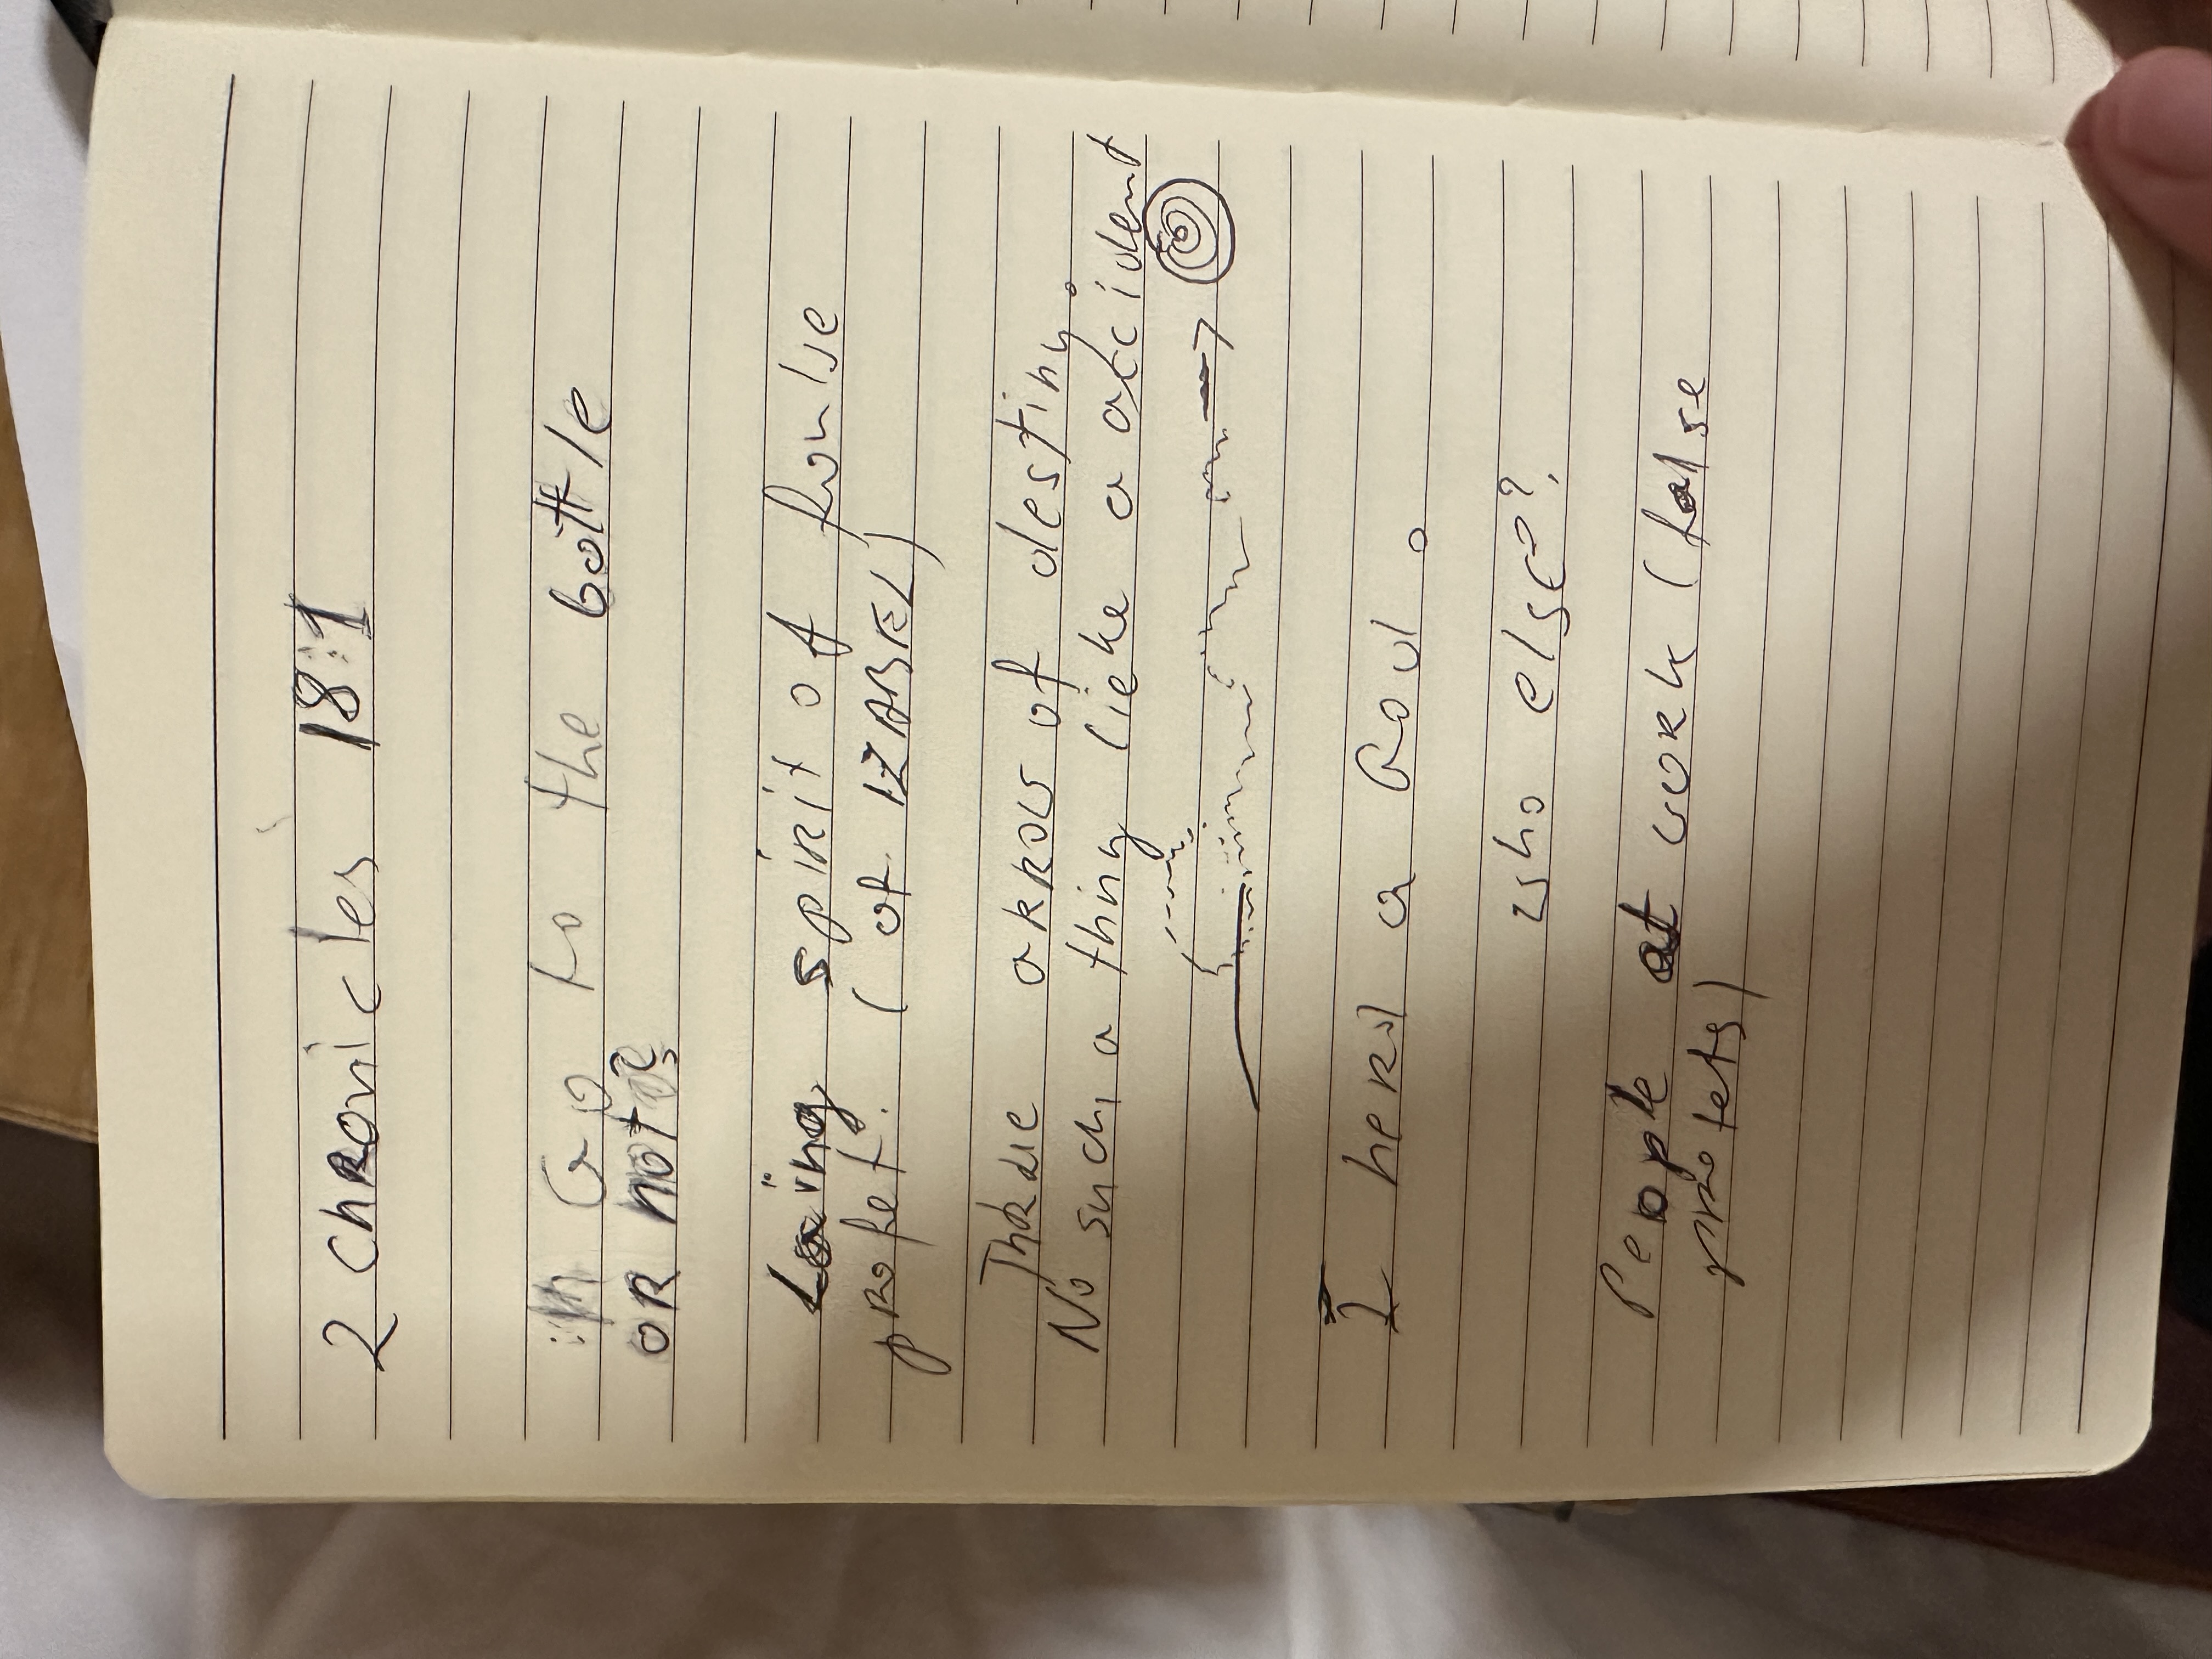 2 Chronicles 18:1
Go to the bottle
OR not
Laing spirit of fonlse
profet. (of IZABEL)
arrow of destiny.
No such a thing lieke a accident
I herd a
who else??
People at work (false
profets)